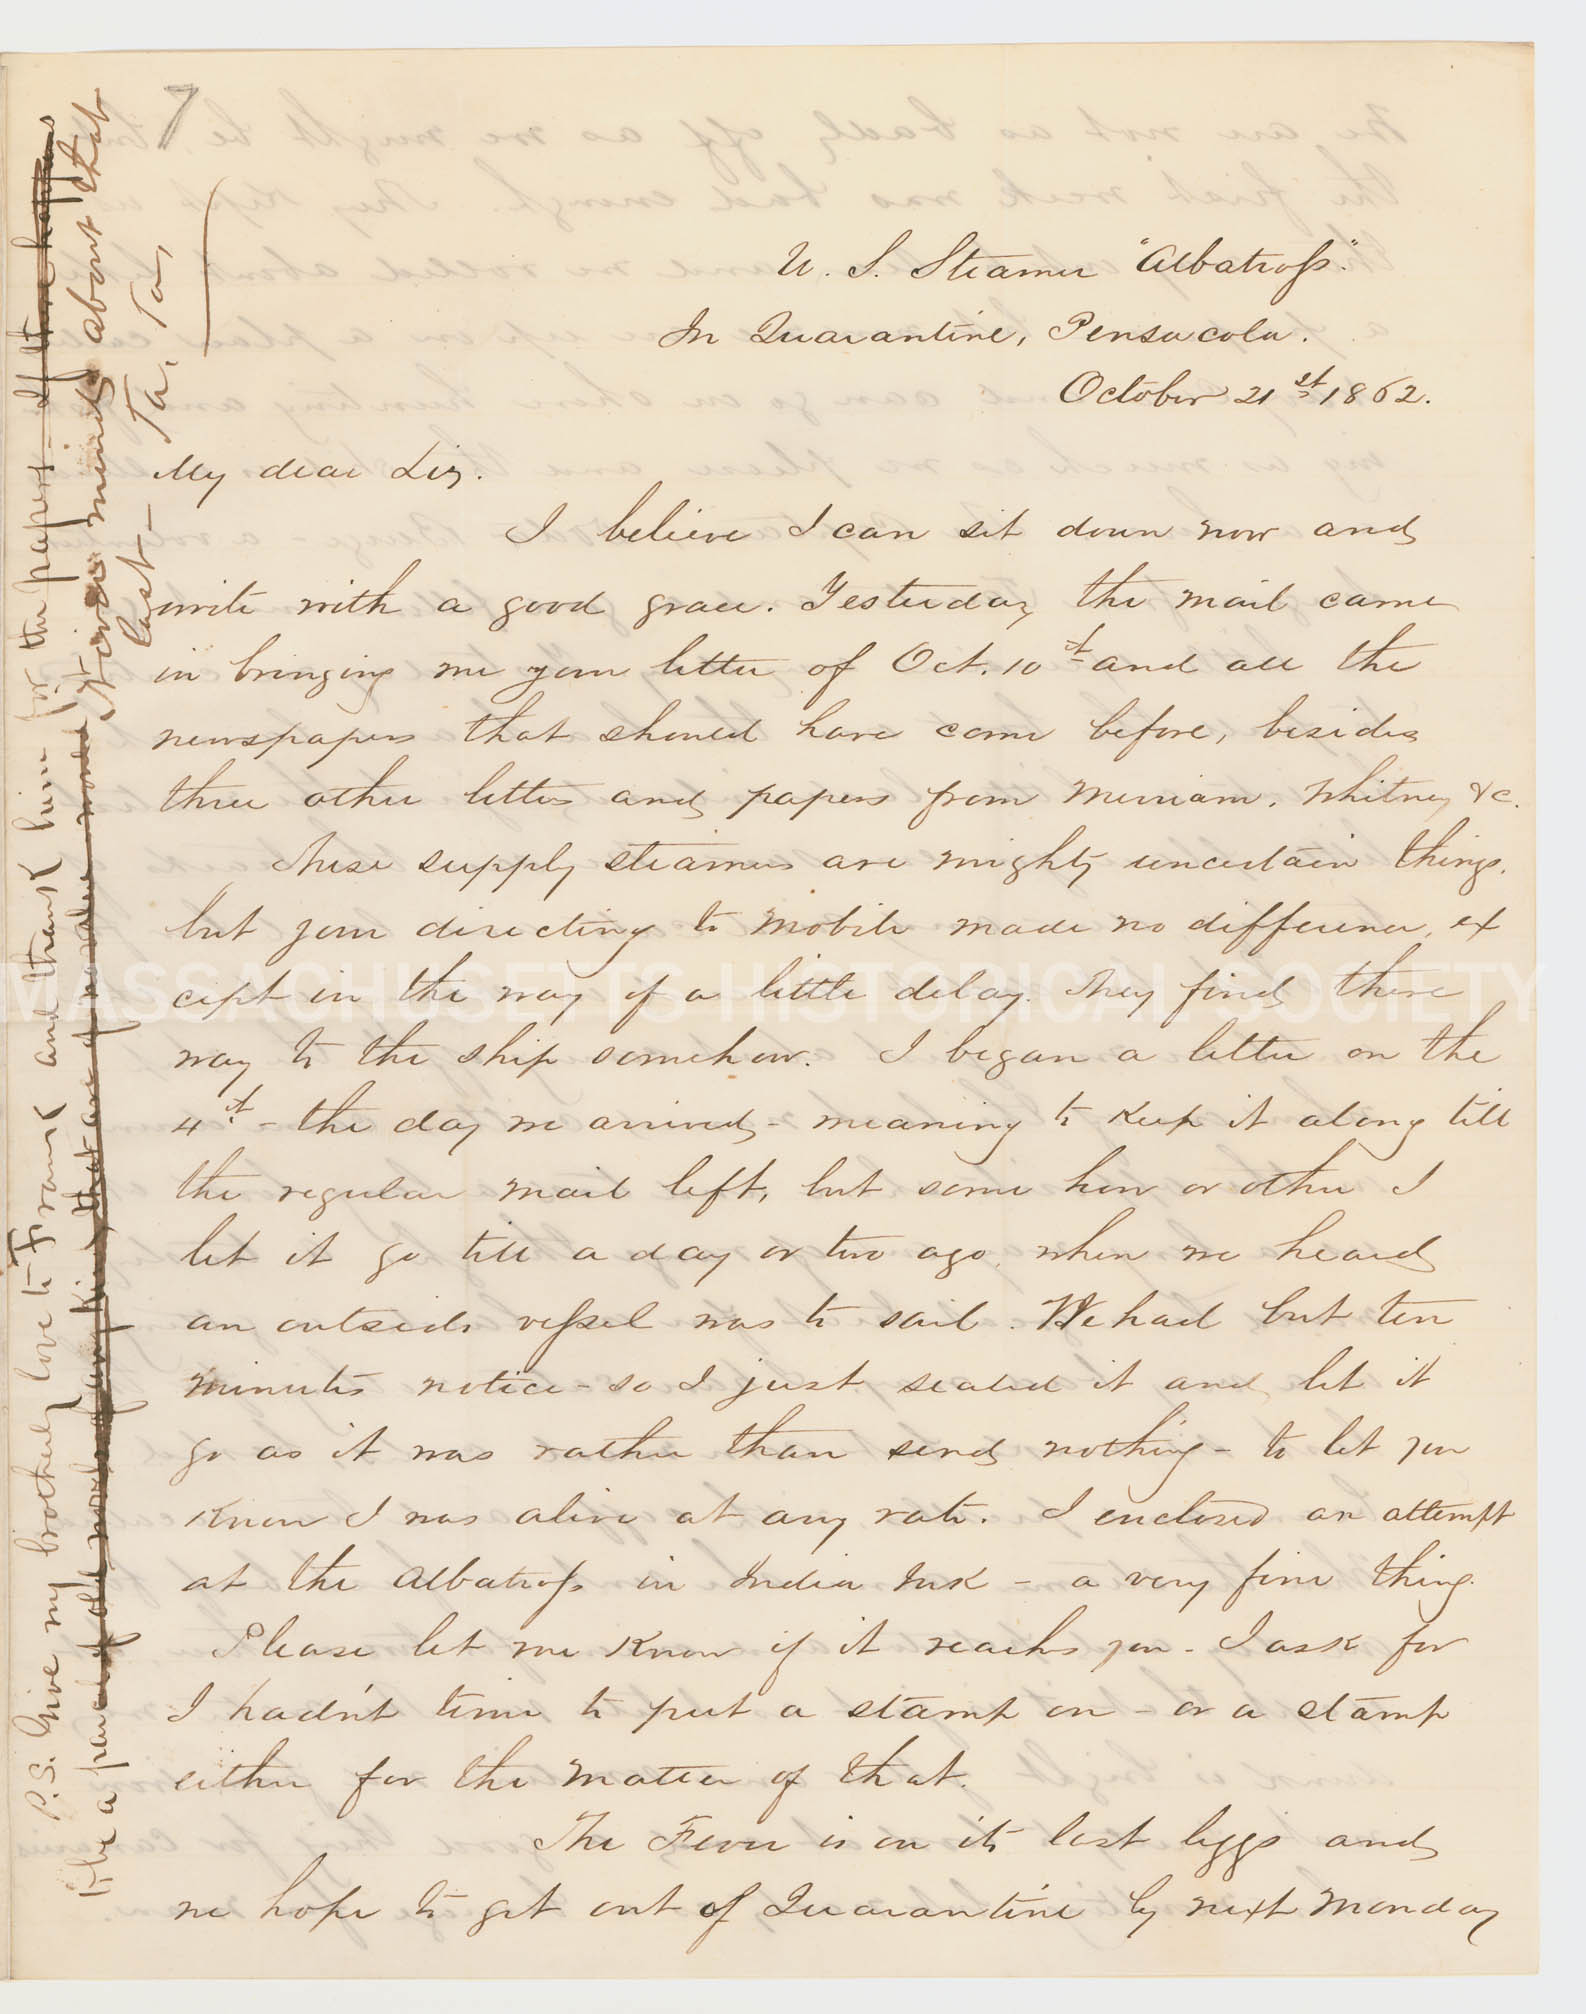 7
U. S. Steamer "Albatross".
In Quarantine, Pensacola.
October 21st 1862.
My dear Liz.
I believe I can sit down now and
write with a good grace. Yesterday the mail came
in bringing me your letter of Oct. 10t and all the
newspapers that should have come before, besides
three other letters and papers from Merriam, Whitney &c.
These supply steamers are mighty uncertain things.
but your directing to Mobile made no difference, ex
cept in the way of a little delay. They find there
way to the ship somehow. I began a letter on the
4t - the day we arrived - meaning to keep it along till
the regular mail left, but some how or other I
let it go till a day or two ago, when we heard
an outside vessel was to sail. We had but ten
minutes notice - so I just sealed it and let it
go as it was rather than send nothing - to let you
know I was alive at any rate. I enclosed an attempt
at the Albatross in India Ink - a very fine thing.
Please let me know if it reachs you - I ask for
I hadn't time to put a stamp on - or a stamp
either for the matter of that.
The Fever is on its last leggs and
we hope to get out of Quarantine by next Monday
P.S. Give my brotherly love to Frank and thank him for the papers - If there happens
to be a parcel of old novels of any kind that are of no value
Never mind about that
last - Ta, Ta,
MASSACHUSETTS HISTORICAL SOCIETY